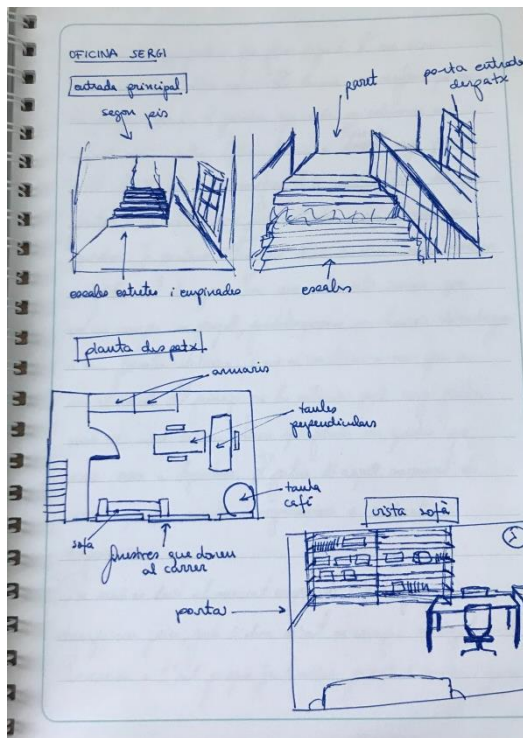 OFICINA SERGI
entrada principal
segon pis
paret
porta entrada
despatx
escales estretes i empinades
escales
planta despatx
armaris
taules
perpendiculars
taula
cafè
sofa
finestres que donen
al carrer
vista sofà
porta